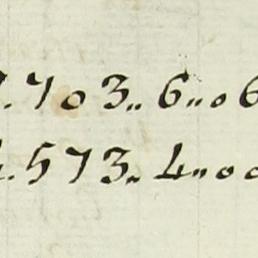 .703.. 6..06
.573.. 4..00